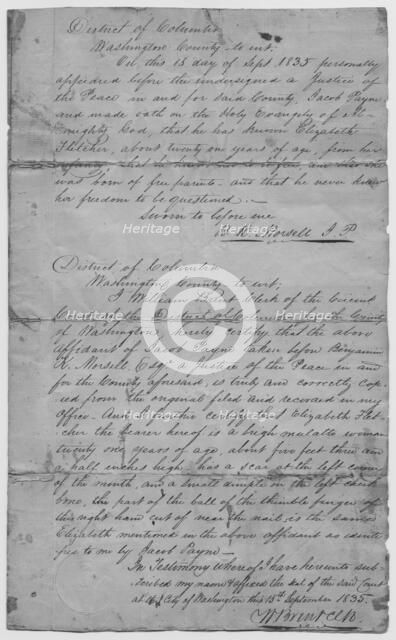 District of Columbia
Washington County to wit:
On this 15 day of Sept 1835 personally
appeared before the undersigned a Justice of
the Peace in and for said County, Jacob Payne
and made oath on the Holy Evangely of Al-
mighty God, that he has known Elizabeth
Fletcher, about twenty one years of age, from her
infancy that he
was born of free parents and that he never knew
her freedom to be questioned.
Sworn to before me
B. K. Morsell J. P
District of Columbia
Washington County to wit:
I William Brent Clerk of the Circuit
Court of the District of Columbia for the County
of Washington hereby certify that the above
affidavit of Jacob Payne taken before Benjamin
K. Morsell Esqr a Justice of the Peace in and
for the County aforesaid, is truly and correctly cop-
ied from the original filed and recorded in my
Office. And I further certify that Elizabeth Flet-
cher the bearer hereof is a high mulatto woman
twenty one years of age, about five feet three and
a half inches high, has a scar at the left corner
of the mouth, and a small dimple on the left cheek
bone, the part of the ball of the thimble finger of
the right hand cut off near the nail, is the same
Elizabeth mentioned in the above affidavit as identi-
fied to me by Jacob Payne
In Testimony whereof I have hereunto sub-
scribed my name & affixed the seal of the said Court
at the City of Washington this 15th September 1835.
W Brent Clk.
Heritage Heritage
Heritage Heritage
Heritage Heritage
Images Images
Images Images
Images Images